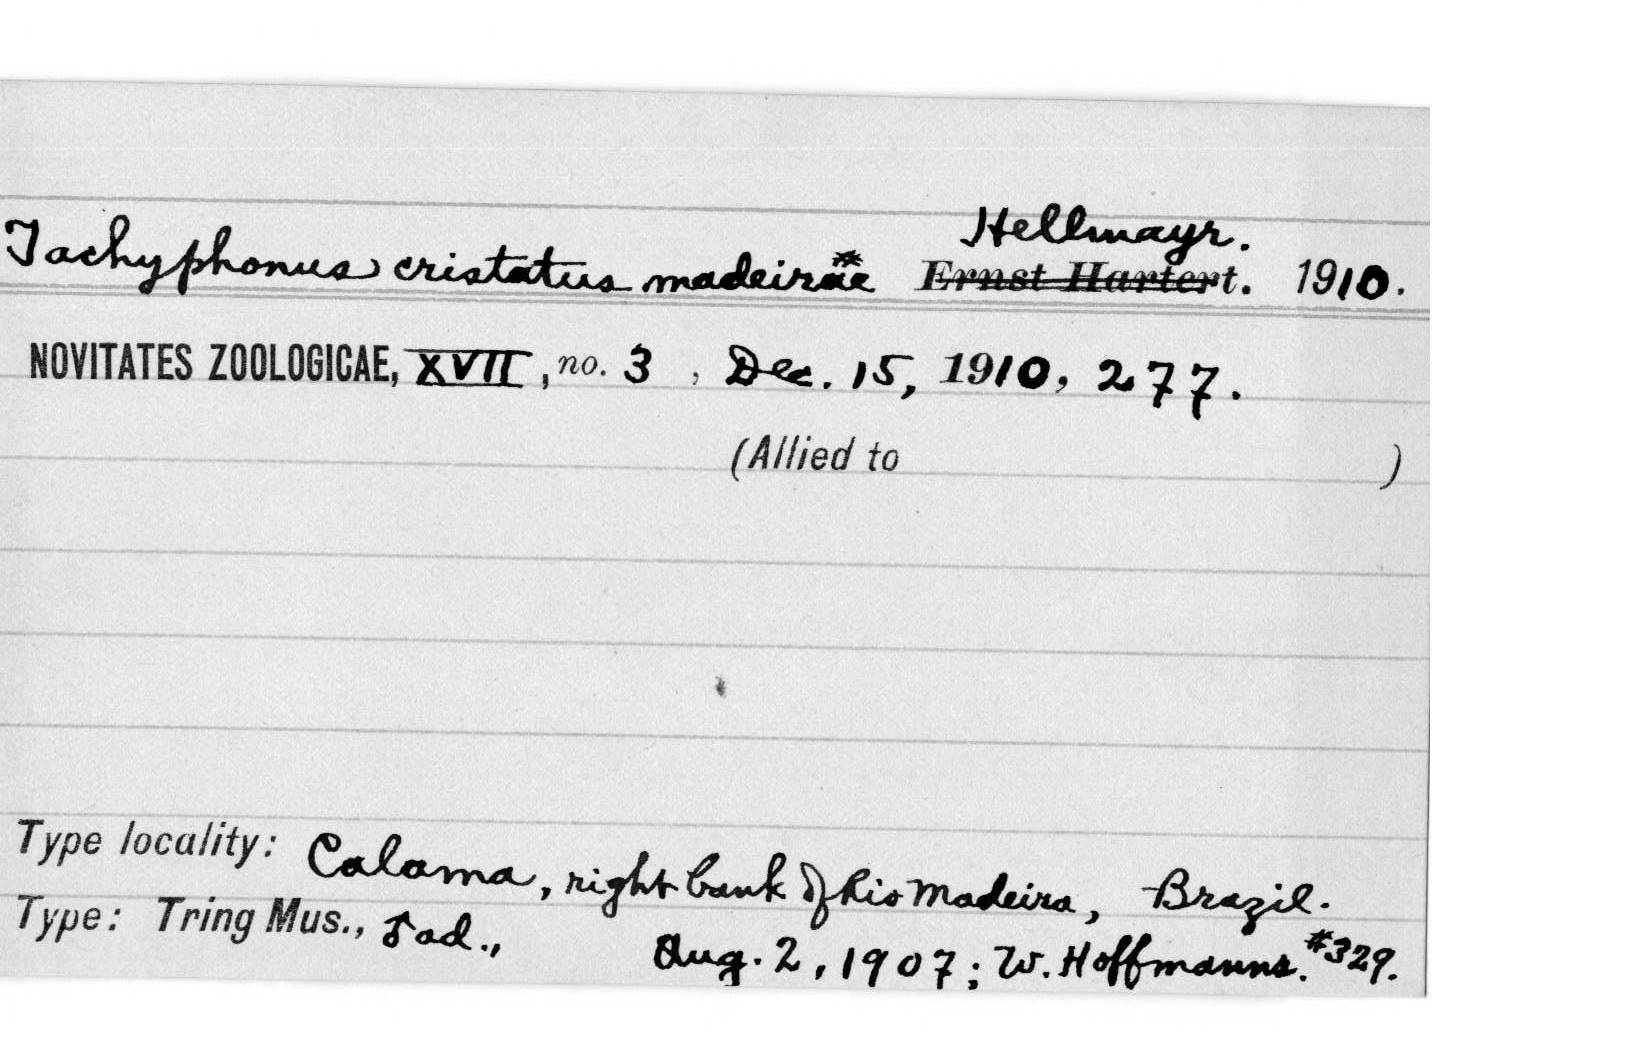 Hellmayr.
Tachyphonus cristatus madeirae Ernst Hartert. 1910.
NOVITATES ZOOLOGICAE, XVII, no. 3, Dec. 15, 1910, 277.
(Allied to )
Type locality: Calama, right bank of Rio Madeira, Brazil.
Type: Tring Mus., ♂ ad., Aug. 2, 1907; W. Hoffmanns. #329.